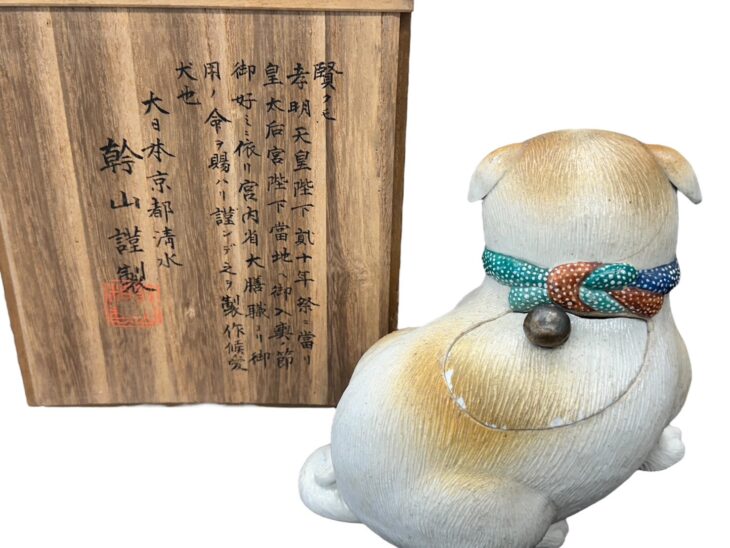 賢クモ
孝明天皇陛下貳十年祭ニ當リ
皇太后宮陛下當地ヘ御入輿ノ節
御好ミニ依リ宮内省大膳職ヨリ御
用ノ命ヲ賜ハリ謹ンデ之ヲ製作候愛
犬也
大日本京都清水
幹山謹製